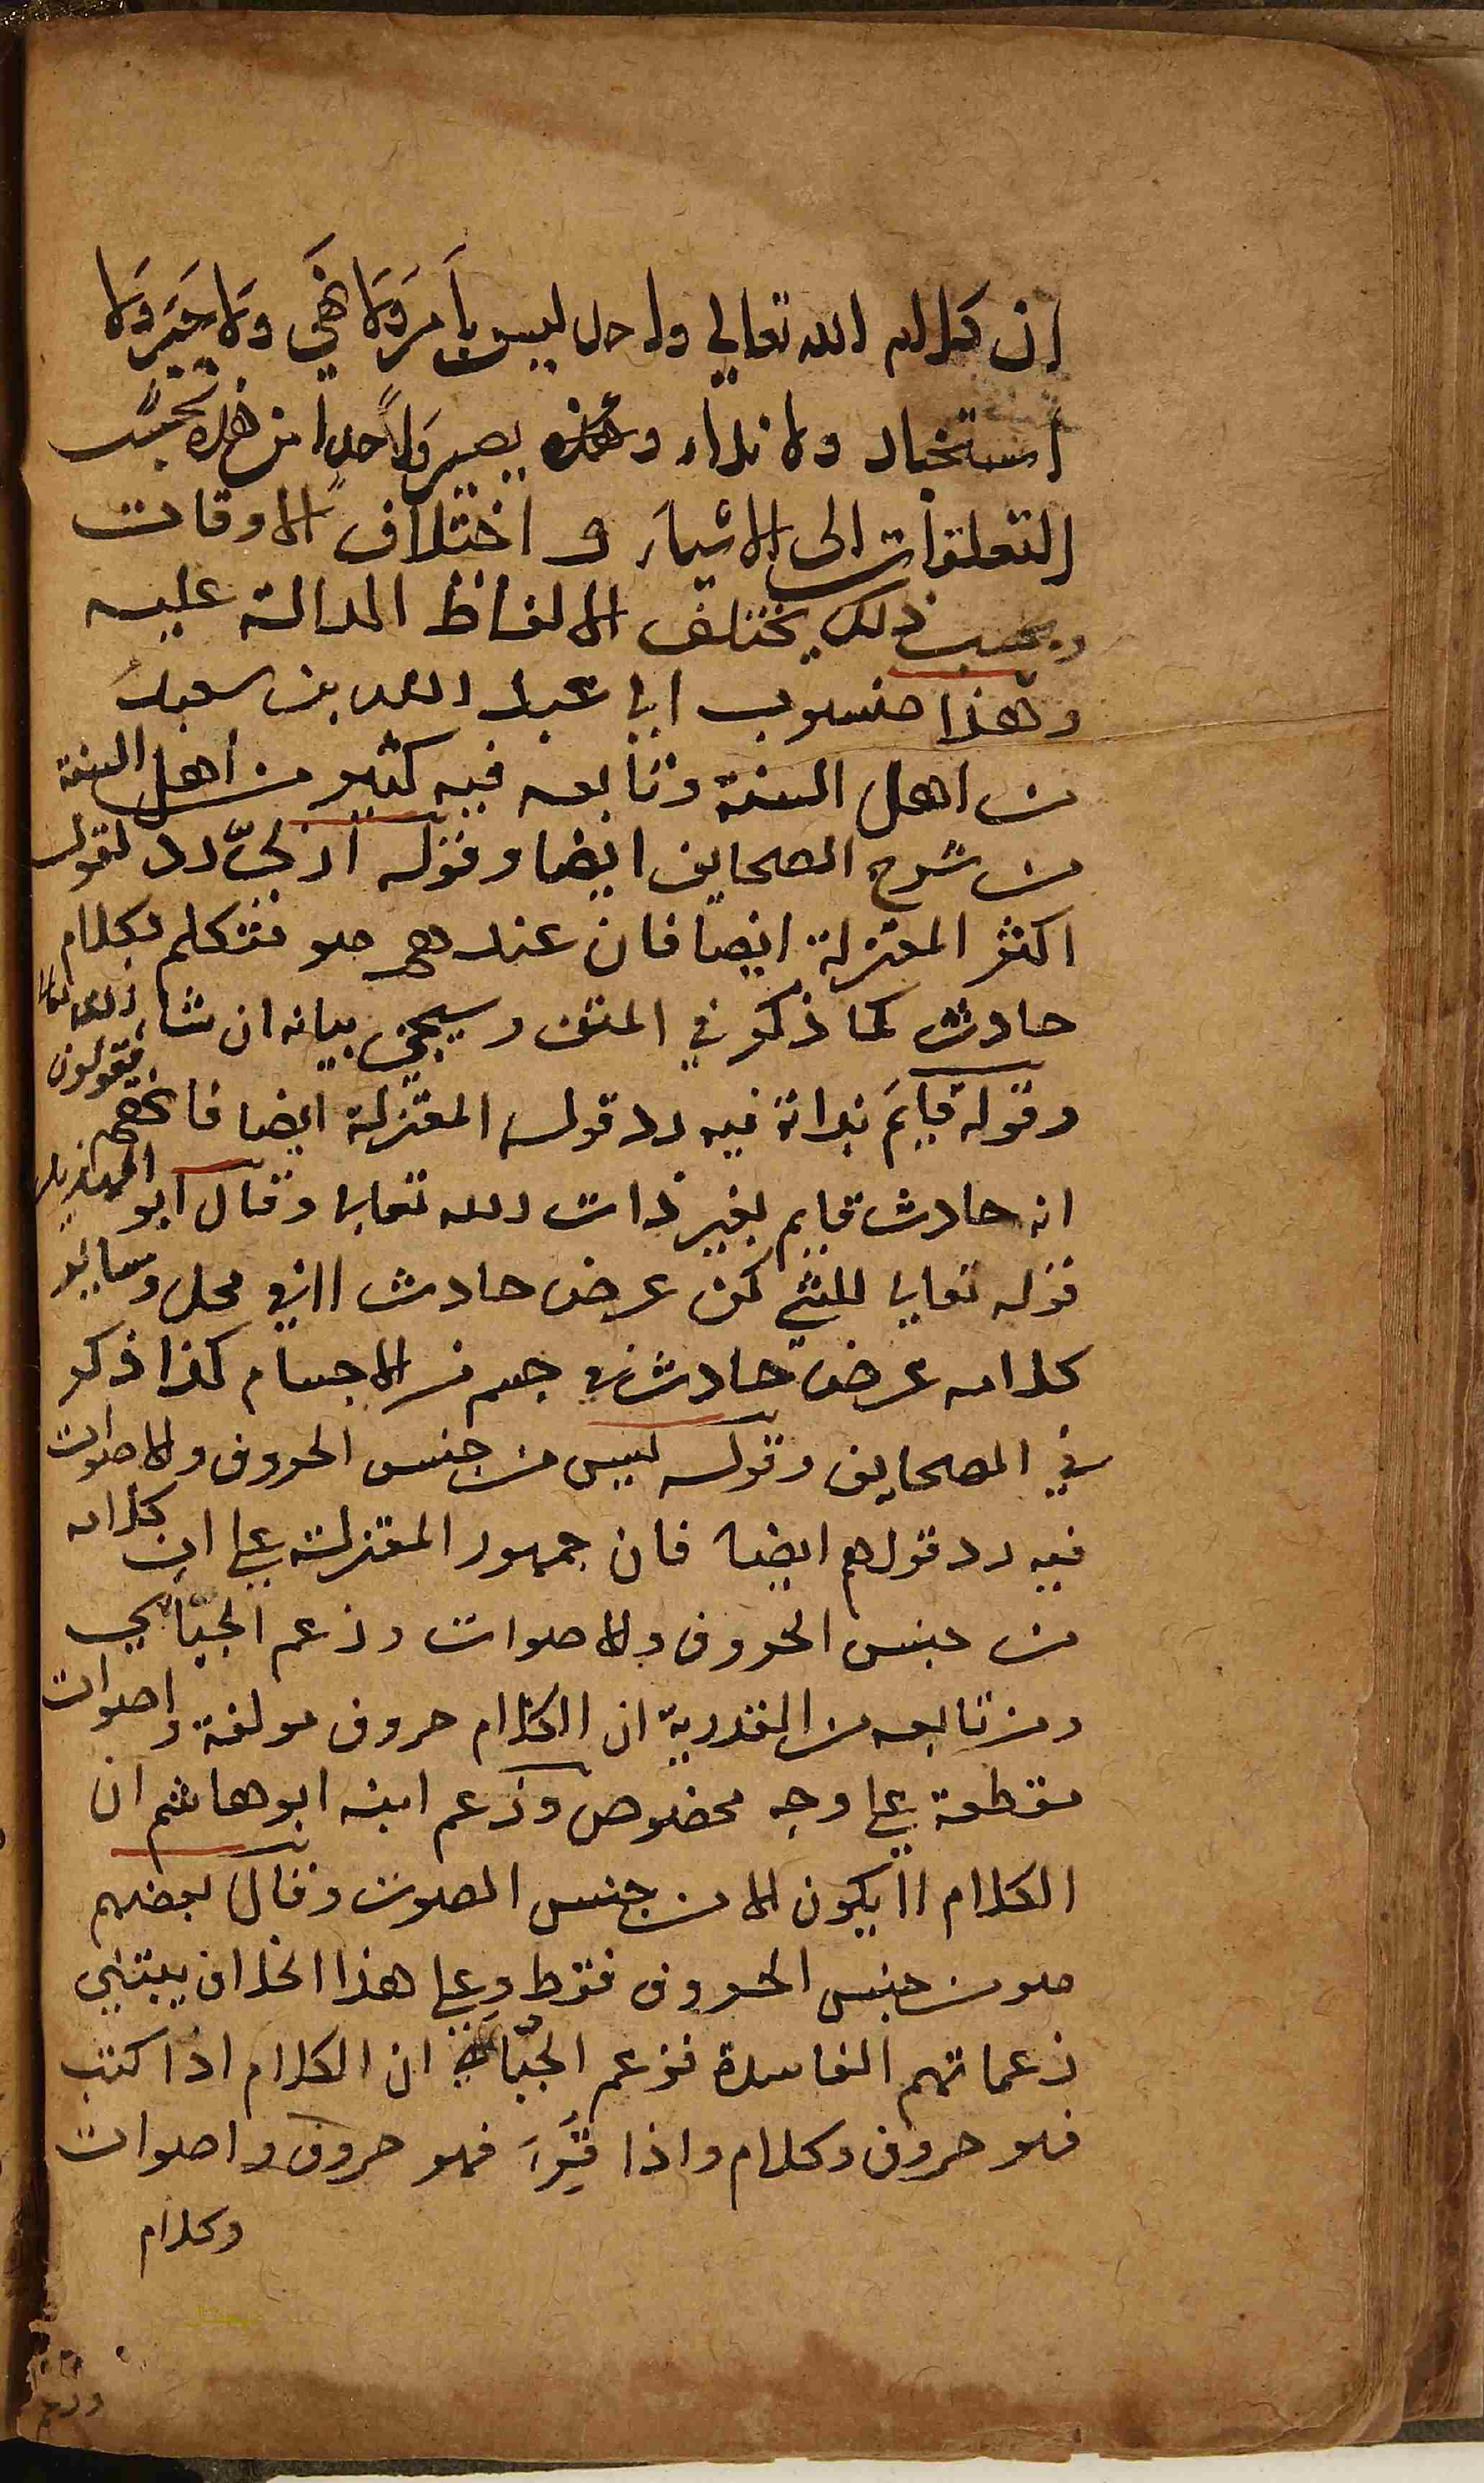 ان كلام الله تعالى واحد ليس بأَمرَ وَلَا نهَي وَلا خبَر وَلا
استخبار ولا نداء وهذه يصير واحدا من هذه بحَسَب
التعلقات الى الاشياء و اختلاف الاوقات
وبحسب ذلك يختلف الالفاظ الدالة عليه
وهذا منسوب الى عبد الله بن سعيد
من اهل السنة وتابعه فيه كثير من اهل السنة
من شرح الصحايف ايضا وقوله ازليّ رد لقول
اكثر المعتزلة ايضا فان عندهم هو متكلم بكلام
حادث كما ذكر في المتن وسيجئ بيانه ان شاء الله تعالى
وقوله قايم بذاته فيه رد قول المعتزلة ايضا فانهم يقولون
انه حادث قايم بغير ذات الله تعالى وقال ابو الهذيل
قوله تعالى للشئ كن عرض حادث لا في محل وساير
كلامه عرض حادث في جسم من الاجسام كذا ذكر
في الصحايف وقوله ليس من جنس الحروف والاصوات
فيه رد قولهم ايضا فان جمهور المعتزلة على ان كلامه
من جنس الحروف والاصوات وزعم الجبّائي
ومن تابعه من القدرية ان الكلام حروف مولفة واصوات
مقطعة على وجه مخصوص وزعم ابنه ابو هاشم ان
الكلام لا يكون الا من جنس الصوت وقال بعضهم
هو من جنس الحروف فقط وعلى هذا الخلاف يبتني
زعماتهم الفاسدة فزعم الجبّائي ان الكلام اذا كتب
فهو حروف وكلام واذا قُرِئَ فهو حروف واصوات
وكلام